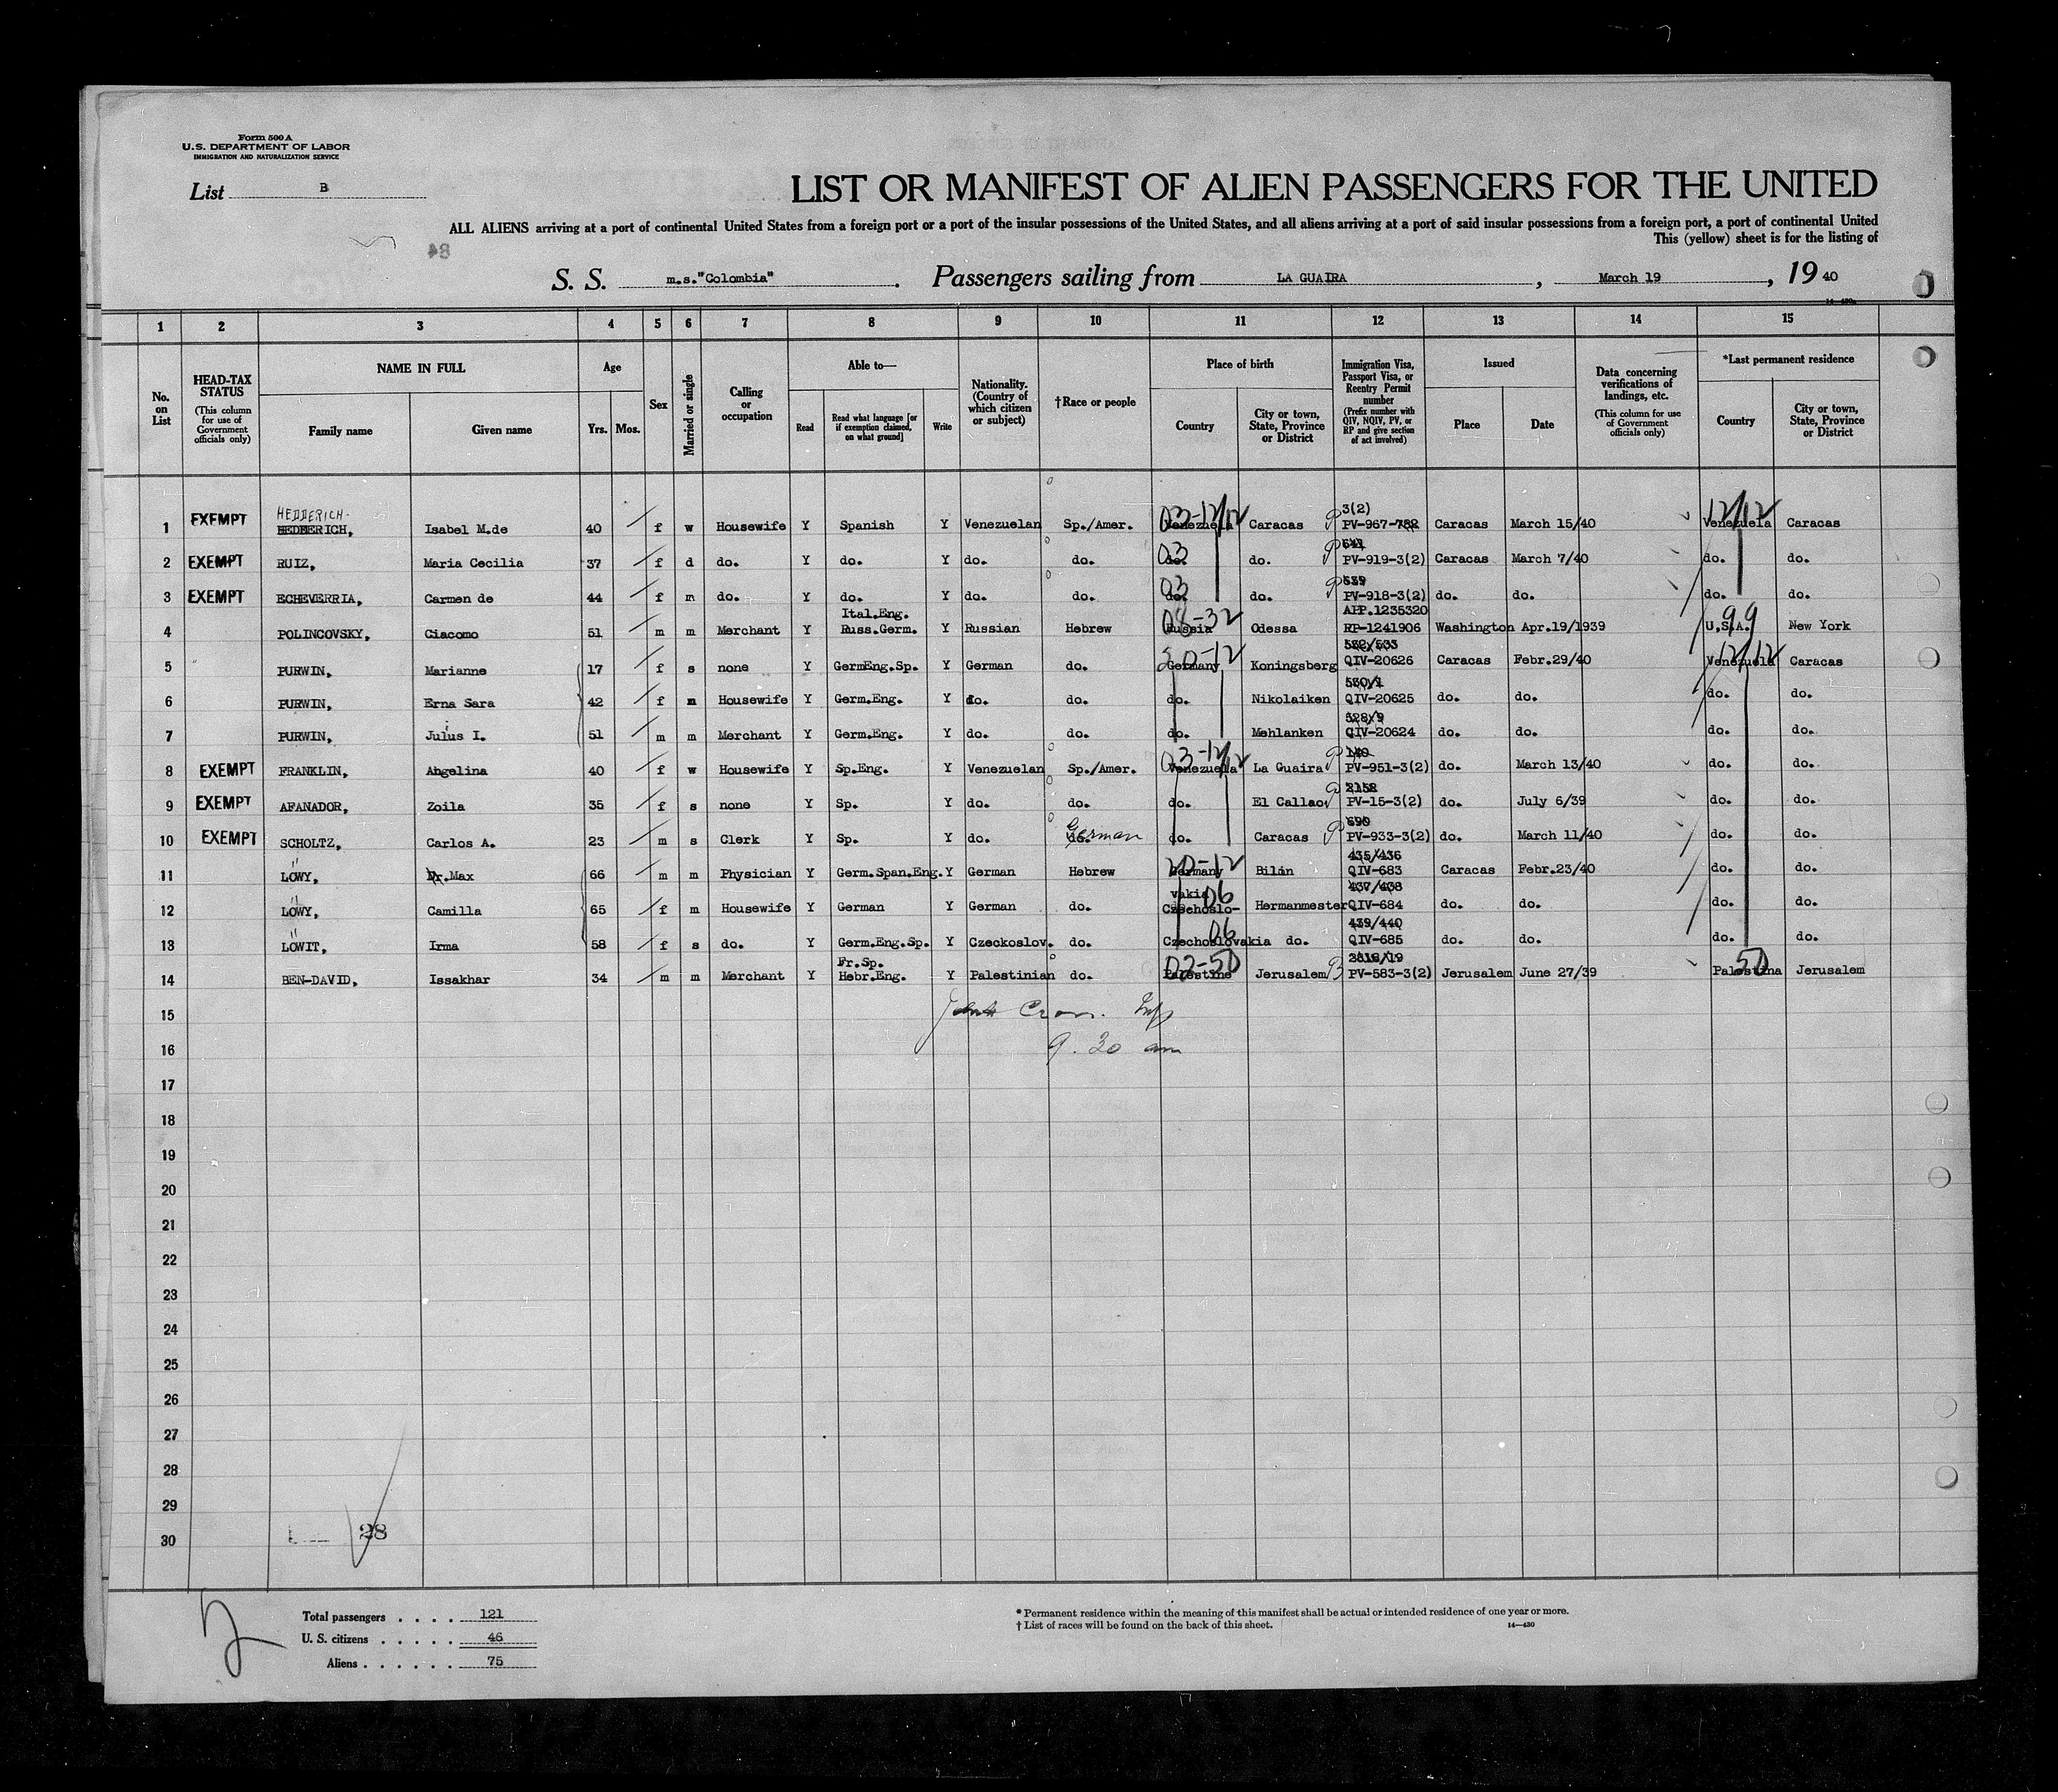 Form 500 A
U.S. DEPARTMENT OF LABOR
IMMIGRATION AND NATURALIZATION SERVICE
List B
LIST OR MANIFEST OF ALIEN PASSENGERS FOR THE UNITED
ALL ALIENS arriving at a port of continental United States from a foreign port or a port of the insular possessions of the United States, and all aliens arriving at a port of said insular possessions from a foreign port, a port of continental United
This (yellow) sheet is for the listing of
S. S. m.s."Colombia". Passengers sailing from LA GUAIRA, March 19, 19 40
1 2 3 4 5 6 7 8 9 10 11 12 13 14 15
No. on List
HEAD-TAX STATUS (This column for use of Government officials only)
NAME IN FULL Family name Given name
Age Yrs. Mos.
Sex
Married or single
Calling or occupation
Able to— Read Read what language [or if exemption claimed, on what ground] Write
Nationality. (Country of which citizen or subject)
†Race or people
Place of birth Country City or town, State, Province or District
Immigration Visa, Passport Visa, or Reentry Permit number (Prefix number with QIV, NQIV, PV, or RP and give section of act involved)
Issued Place Date
Data concerning verifications of landings, etc. (This column for use of Government officials only)
*Last permanent residence Country City or town, State, Province or District
HEDDERICH- 3(2)
1 EXEMPT HEDDERICH, Isabel M.de 40 f w Housewife Y Spanish Y Venezuelan Sp./Amer. 03-12/12 Venezuela Caracas P PV-967-782 Caracas March 15/40 12/12 Venezuela Caracas
2 EXEMPT RUIZ, Maria Cecilia 37 f d do. Y do. Y do. do. 03 do. do. P PV-919-3(2) Caracas March 7/40 do. do.
539
3 EXEMPT ECHEVERRIA, Carmen de 44 f m do. Y do. Y do. do. 03 do. do. P PV-918-3(2) do. do. do. do.
Ital.Eng. APP.1235320
4 POLINCOVSKY, Giacomo 51 m m Merchant Y Russ.Germ. Y Russian Hebrew 08-32 Russia Odessa RP-1241906 Washington Apr.19/1939 99 U.S.A. New York
532/533
5 PURWIN, Marianne 17 f s none Y GermEng.Sp. Y German do. 20-12 Germany Koningsberg QIV-20626 Caracas Febr.29/40 12/12 Venezuela Caracas
530/1
6 PURWIN, Erna Sara 42 f m Housewife Y Germ.Eng. Y do. do. do. Nikolaiken QIV-20625 do. do. do. do.
528/9
7 PURWIN, Julius I. 51 m m Merchant Y Germ.Eng. Y do. do. do. Mehlanken QIV-20624 do. do. do. do.
140
8 EXEMPT FRANKLIN, Angelina 40 f w Housewife Y Sp.Eng. Y Venezuelan Sp./Amer. 03-12/12 Venezuela La Guaira P PV-951-3(2) do. March 13/40 do. do.
2152
9 EXEMPT AFANADOR, Zoila 35 f s none Y Sp. Y do. do. do. El Callao P PV-15-3(2) do. July 6/39 do. do.
690
10 EXEMPT SCHOLTZ, Carlos A. 23 m s Clerk Y Sp. Y do. do. German do. Caracas P PV-933-3(2) do. March 11/40 do. do.
435/436
11 LÖWY, Dr.Max 66 m m Physician Y Germ.Span.Eng. Y German Hebrew 20-12 Germany Bilán QIV-683 Caracas Febr.23/40 do. do.
vakia 06 437/438
12 LÖWY, Camilla 65 f m Housewife Y German Y German do. Czechoslo- Hermanmester QIV-684 do. do. do. do.
439/440
13 LÖWIT, Irma 58 f s do. Y Germ.Eng.Sp. Y Czeckoslov. do. 06 Czechoslovakia do. QIV-685 do. do. do. do.
Fr.Sp. 2818/19
14 BEN-DAVID, Issakhar 34 m m Merchant Y Hebr.Eng. Y Palestinian do. 02-50 Palestine Jerusalem PV-583-3(2) Jerusalem June 27/39 50 Palestina Jerusalem
15
16 9.30 am
17
18
19
20
21
22
23
24
25
26
27
28
29
30 28
2
Total passengers . . . . 121
U. S. citizens . . . . . 46
Aliens . . . . . . 75
* Permanent residence within the meaning of this manifest shall be actual or intended residence of one year or more.
† List of races will be found on the back of this sheet. 14—430